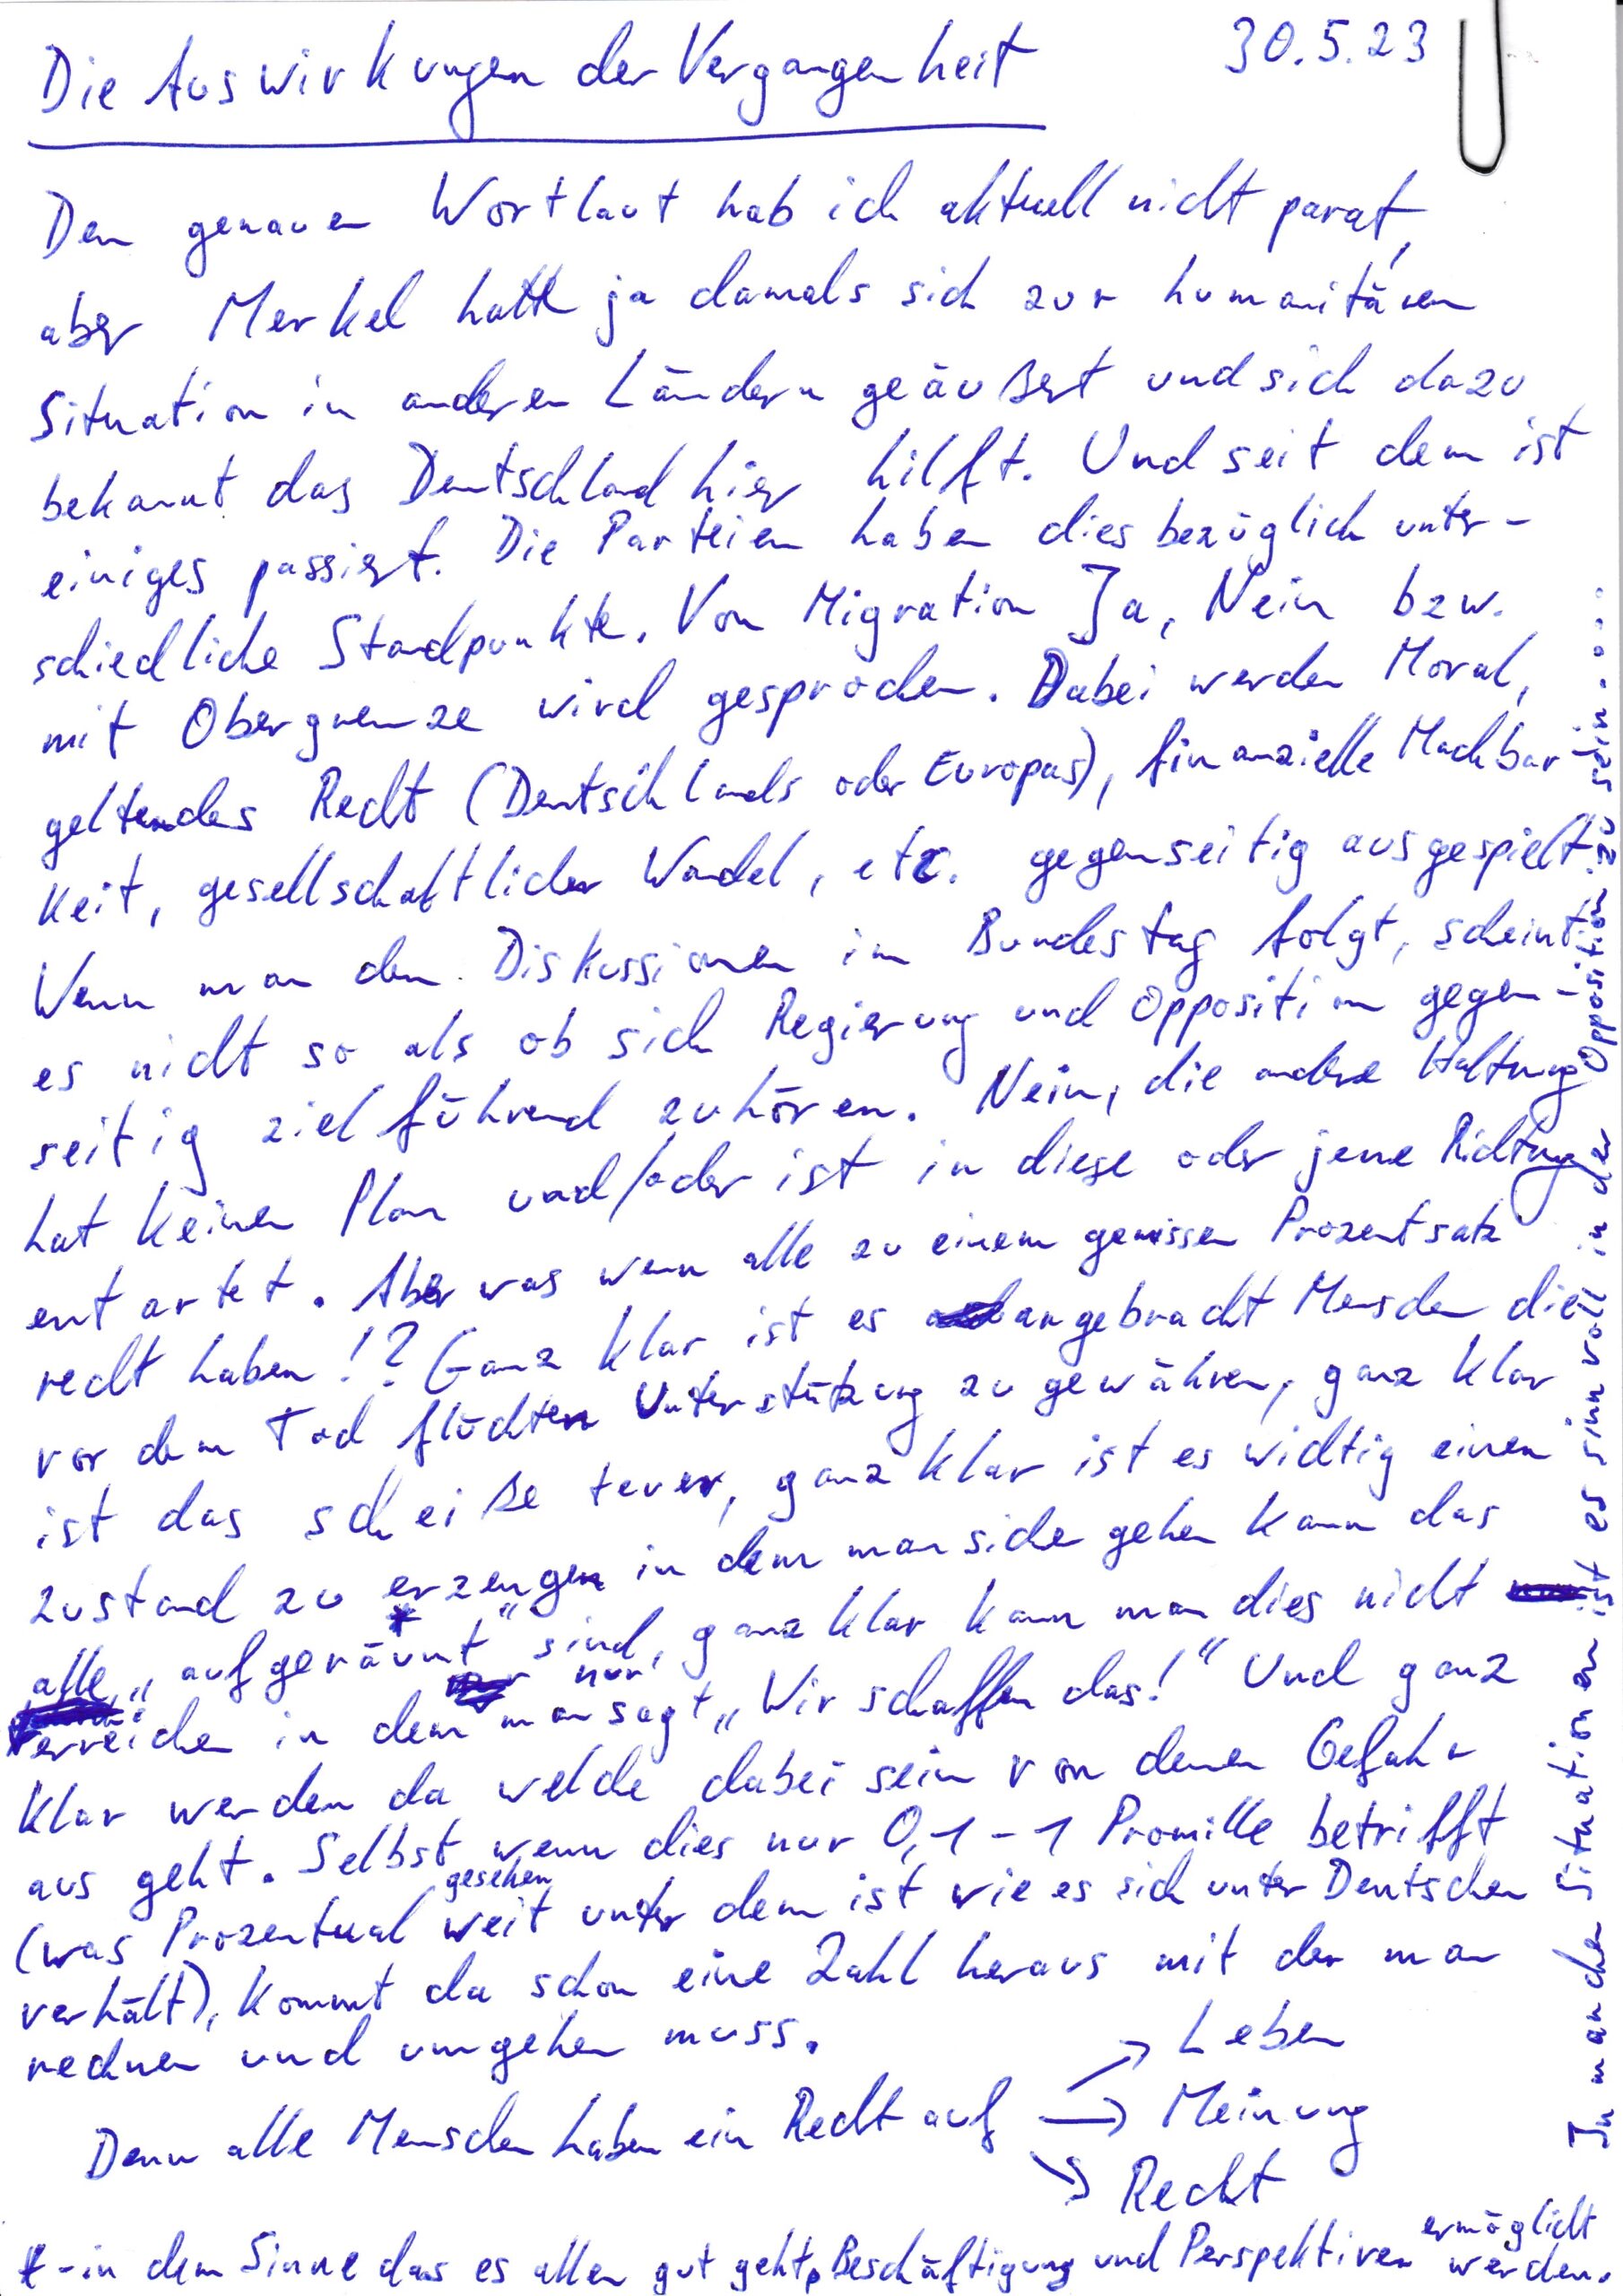 Die Auswirkungen der Vergangenheit 30.5.23
Den genauen Wortlaut hab ich aktuell nicht parat,
aber Merkel hatte ja damals sich zur humanitären
Situation in anderen Ländern geäußert und sich dazu
bekannt das Deutschland hier hilft. Und seit dem ist
einiges passiert. Die Parteien haben dies bezüglich unter-
schiedliche Standpunkte. Von Migration Ja, Nein bzw.
mit Obergrenze wird gesprochen. Dabei werden Moral,
geltendes Recht (Deutschlands oder Europas), finanzielle Machbar-
keit, gesellschaftlicher Wandel, etc. gegenseitig ausgespielt.
Wenn man den Diskussionen im Bundestag folgt, scheint
es nicht so als ob sich Regierung und Opposition gegen-
seitig zielführend zuhören. Nein, die andere Haltung
hat keinen Plan und/oder ist in diese oder jene Richtung
entartet. Aber was wenn alle zu einem gewissen Prozentsatz
recht haben!? Ganz klar ist es angebracht Menschen die
vor dem Tod flüchten Unterstützung zu gewähren, ganz klar
ist das scheiße teuer, ganz klar ist es wichtig einen
Zustand zu erzeugen in dem man sicher gehen kann das
alle „aufgeräumt*“ sind, ganz klar kann man dies nicht
erreichen in dem man nur sagt „Wir schaffen das!“ Und ganz
klar werden da welche dabei sein von denen Gefahr
aus geht. Selbst wenn dies nur 0,1-1 Promille betrifft
(was Prozentual gesehen weit unter dem ist wie es sich unter Deutschen
verhält), kommt da schon eine Zahl heraus mit der man
rechnen und umgehen muss.
Denn alle Menschen haben ein Recht auf → Leben
→ Meinung
→ Recht
* - in dem Sinne das es allen gut geht, Beschäftigung und Perspektiven ermöglicht werden.
In manchen Situationen ist es sinnvoll in der Opposition zu sein....